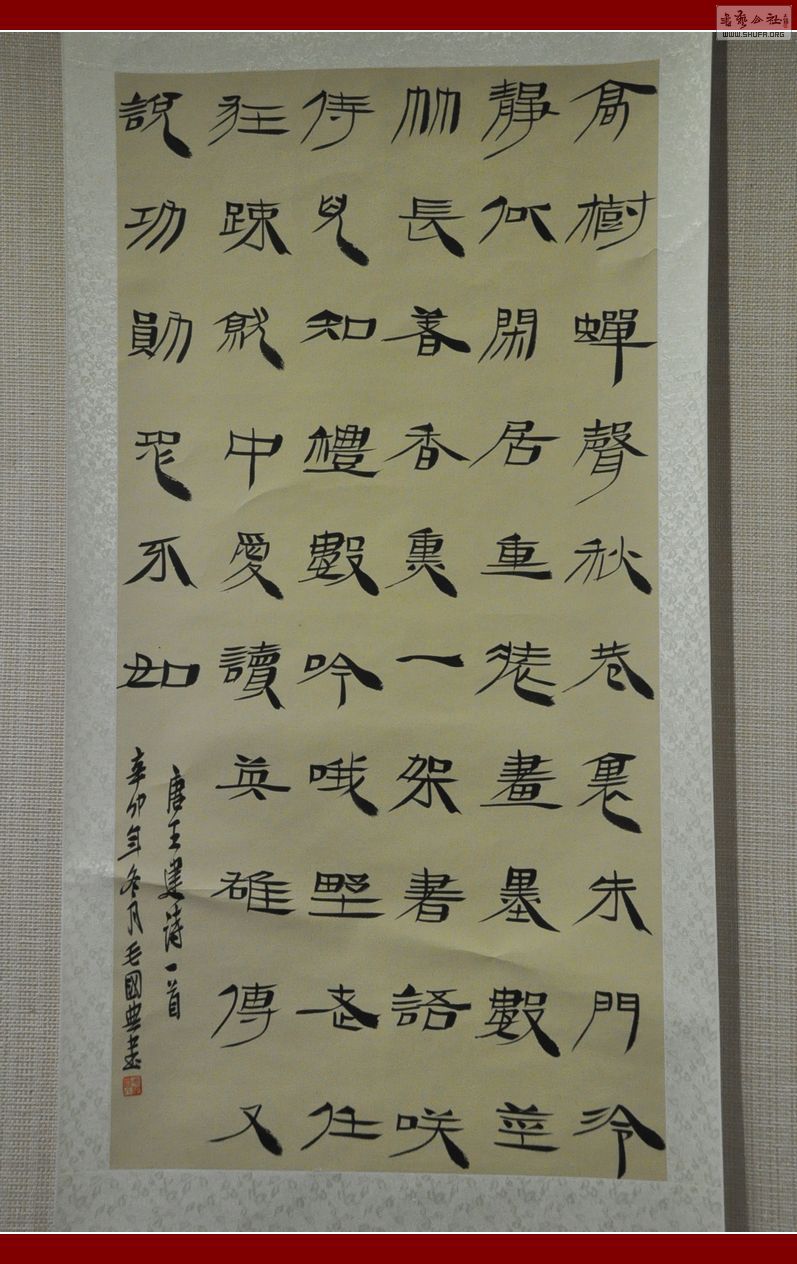 高樹蟬聲秋巷裏朱門冷
靜似閑居重裝畫墨數莖
竹長著香熏一架書語咲
侍兒知禮數吟哦野老任
狂疎就中愛讀英雄傳又
說功勛恐不如
唐王建詩一首
辛卯年冬月毛國典書
書藝公社
WWW.SHUFA.ORG